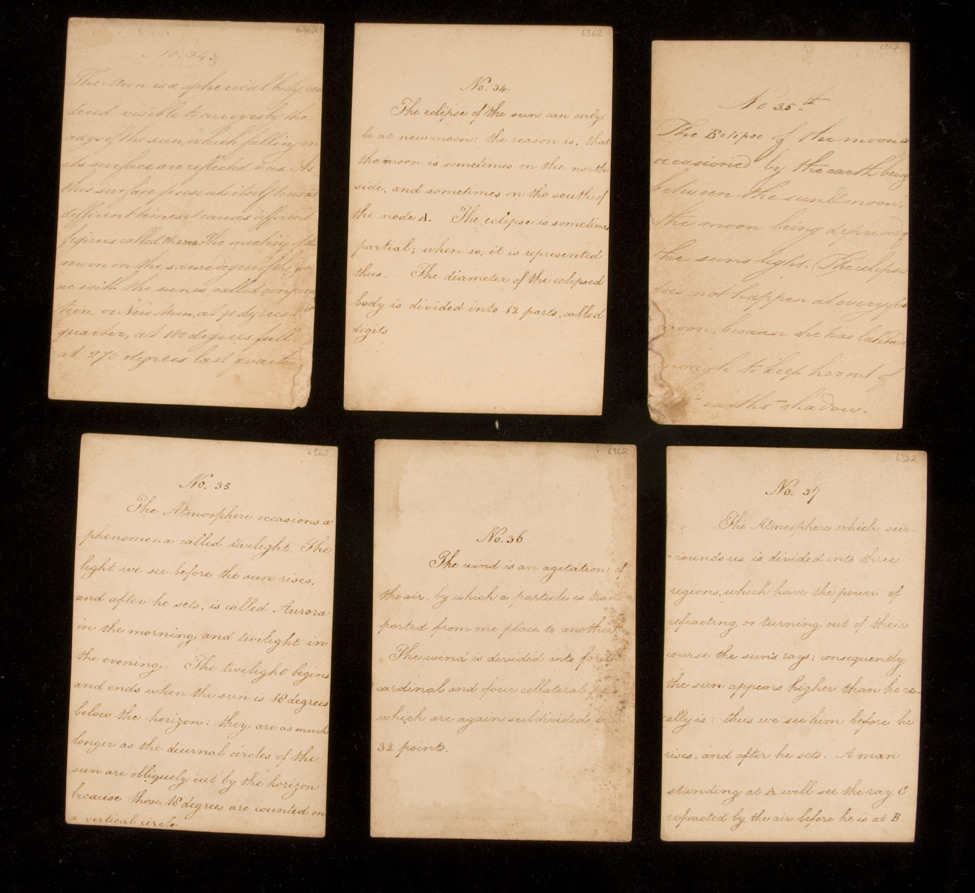 6962
The Moon is a spherical body
dered visible to our eyes by the
rays of the sun, which falling on
its surface are reflected to us. As
this surface
different times it causes different
figures called The meeting of the
moon on the same degree of the
ac with the sun is called
tion, or New Moon, at 90 degrees
quarter, at 180 degrees full
at 270 degrees last quarter
6962
No. 34.
The eclipse of the sun can only
be at new moon: the reason is, that
the moon is sometimes on the north
side, and sometimes on the south of
the node A. The eclipse is sometimes
partial; when so, it is represented
thus. The diameter of the eclipsed
body is divided into 12 parts, called
digits
6962
No 35th
The Eclipse of the moon is
occasioned by the earth being
between the sun & moon,
the moon being deprived of
the suns light. The eclipse
does not happen at every full
moon, because she has latitude
enough to keep her out of
earth's shadow.
6962
No. 35
The Atmosphere occasions a
phenomena called twilight. The
light we see before the sun rises,
and after he sets, is called Aurora
in the morning and twilight in
the evening. The twilight begins
and ends when the sun is 18 degrees
below the horizon: they are as much
longer as the diurnal circles of the
sun are obliquely cut by the horizon
because those 18 degrees are counted on
a vertical circle
6962
No. 36
The wind is an agitation of
the air, by which a particle is trans
ported from one place to another
The wind is divided into four
cardinal and four collateral
which are again subdivided
32 points.
6962
No. 37
The Atmosphere which sur-
-rounds us is divided into three
regions, which have the power of
refracting, or turning out of their
course the sun's rays; consequently
the sun appears higher than he re-
ally is: thus we see him before he
rises, and after he sets. A man
standing at A will see the ray C
refracted by the air before he is at B